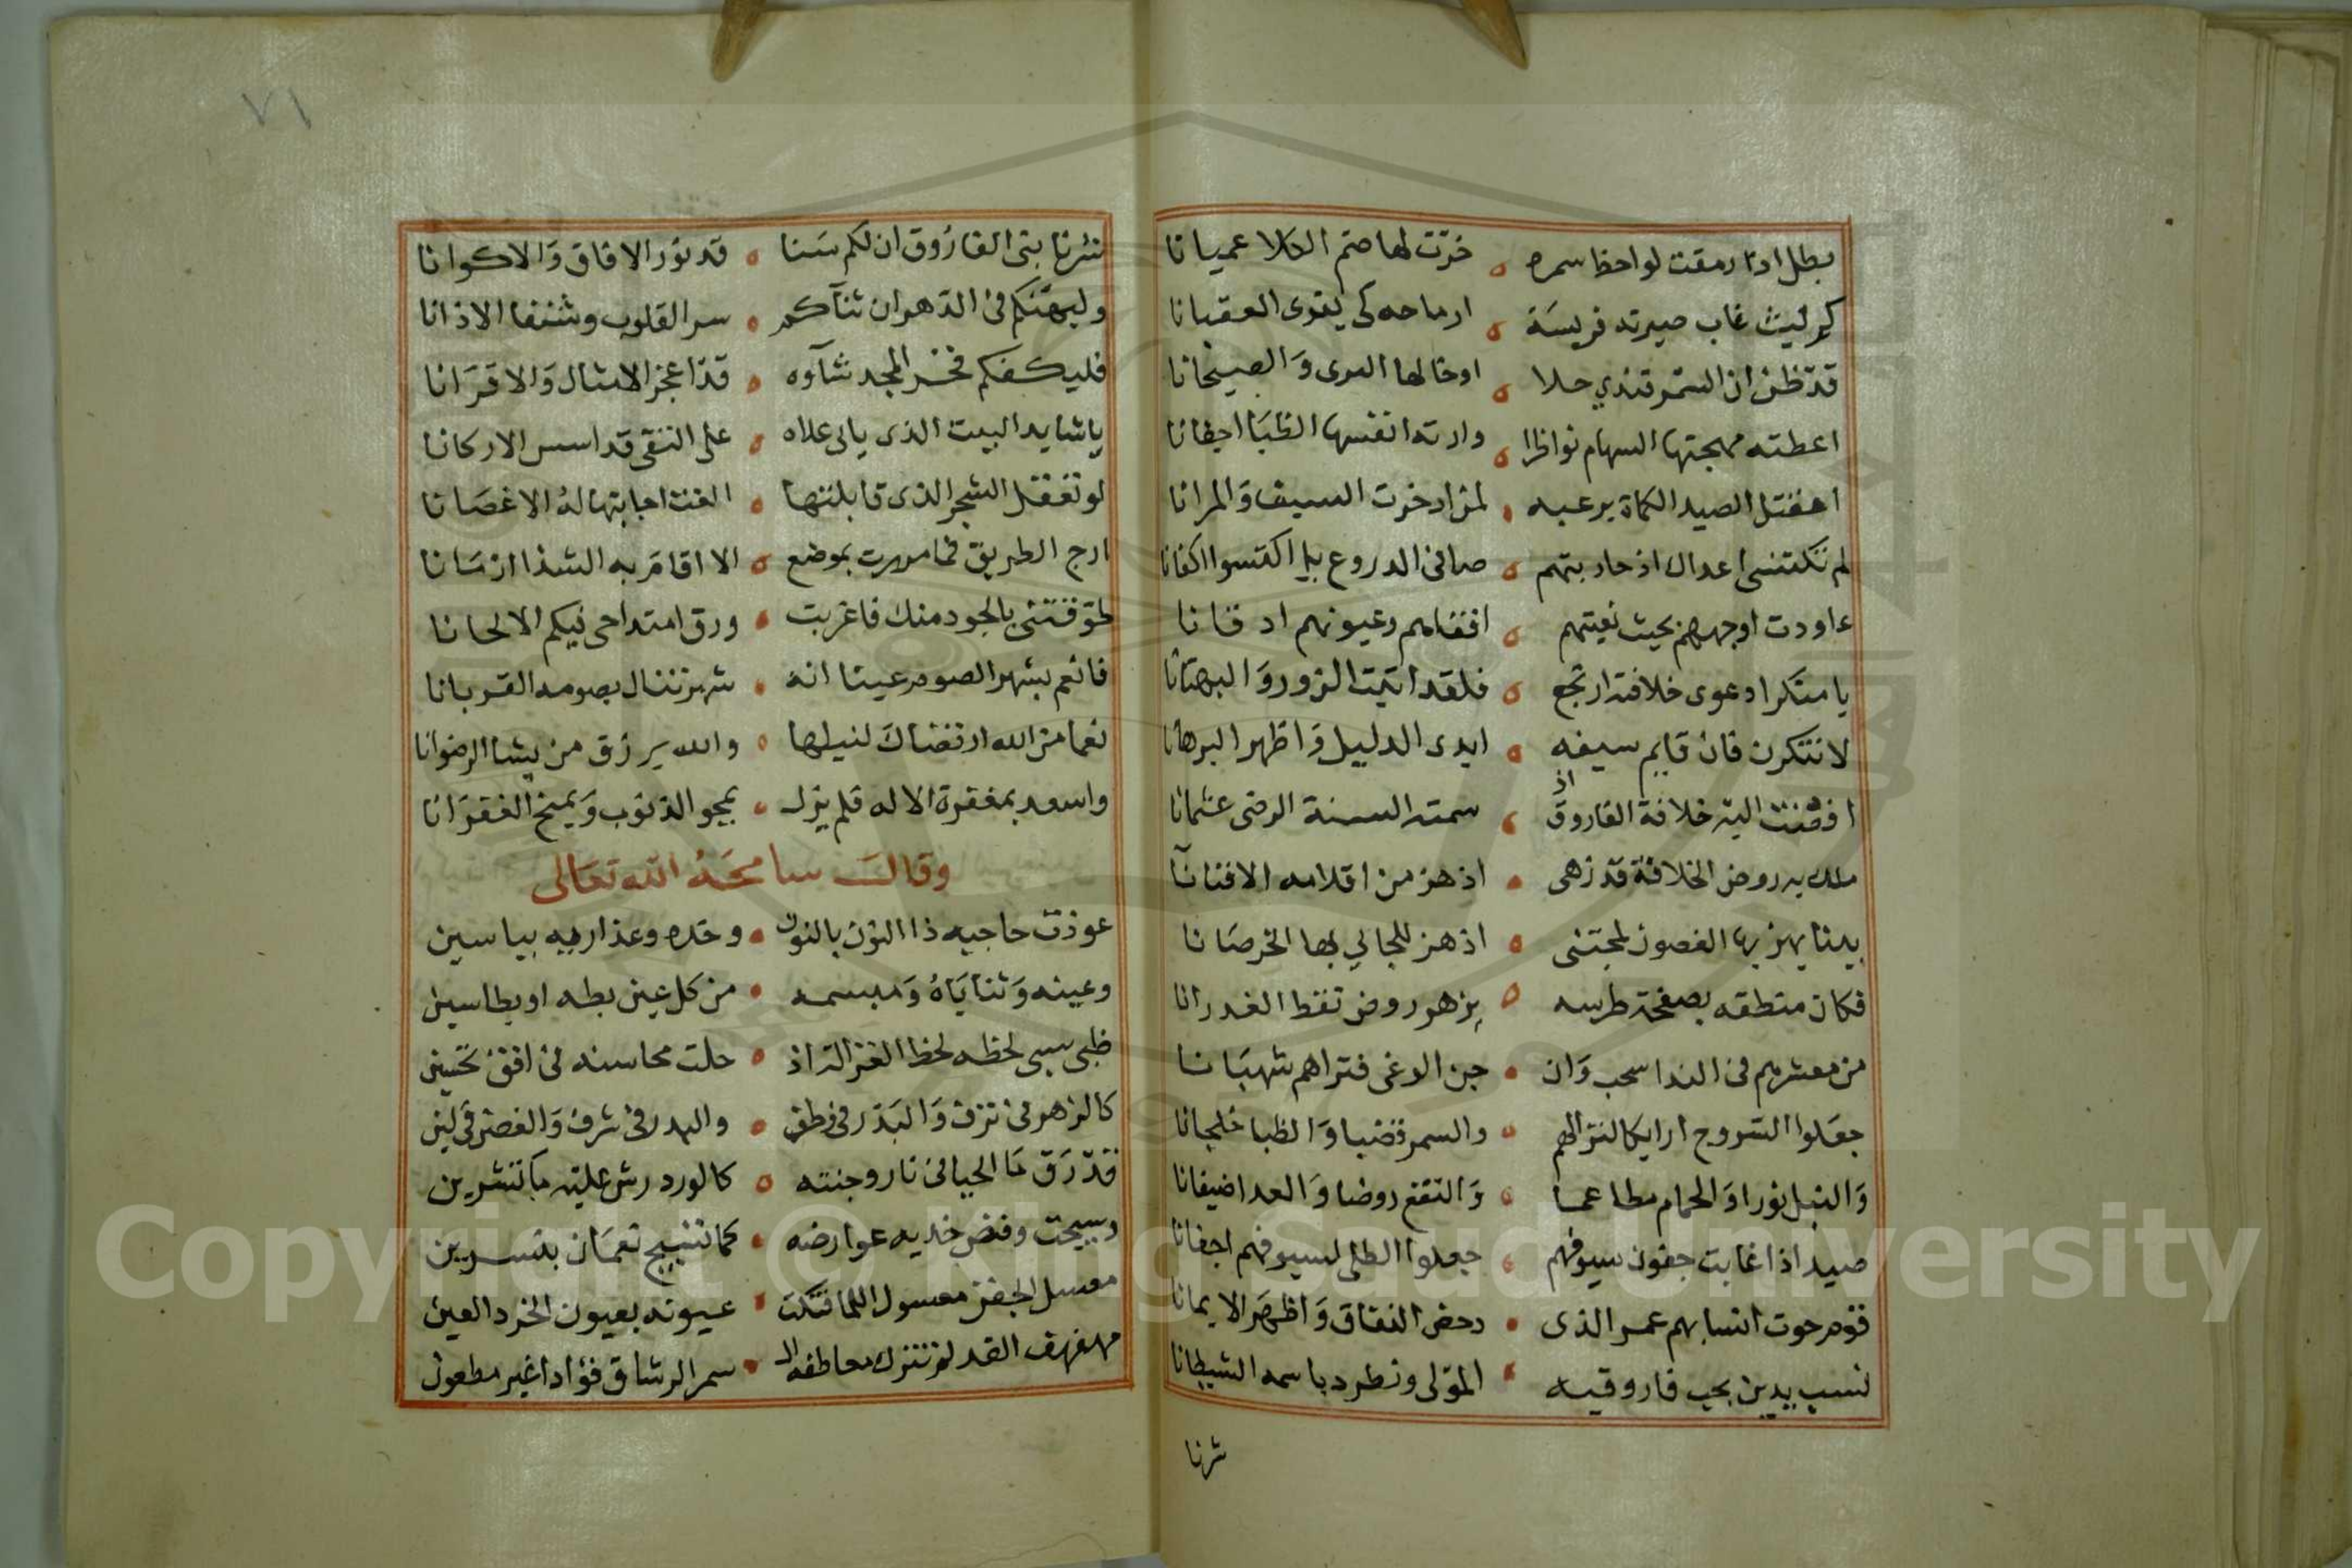 بطل اذا رمقت لواحظ سمره ه خرّت لها صم الكلا عميانا
كم ليث غاب صيرته فريسة ه ارماحه كي يقوى العقبانا
قد ظن ان السمر تندي حلا ه اوخالها المرى والصيحانا
اعطته مهجتها السهام نواظرا ه وارته انفسها الظبا اجفانا
الصيد الكماة برعبه ه لمن ادخرت السيف والمرانا
لم تكتسى اعداك اذ حاربتهم ه صافى الدروع بل اكتسوا اكفانا
عاودت اوجههم بحيث ه اقفاهم وعيونهم اذقانا
يا منكرا دعوى خلافته ارتجع ه فلقد اتيت الزور والبهتانا
لا تنكرن فان قايم سيفه ه ابدى الدليل واظهر البرهانا
افضت اليه خلافة الفاروق اذ ه سمته السنة الرضى عثمانا
ملك به روض الخلافة قد زهى ه اذ هز من اقلامه الافنانا
بينا يهز بها الغصون لمجتنى ه اذ هز للجالي بها الخرصانا
فكان منطقه بصفحة طرسه ه بزهور روض نقط الغدرانا
من معشر هم فى الندا سحب وان ه جن الوغى فتراهم شهبانا
جعلوا السروج ارايكا لنزالهم ه والسمر قضبا والظبا خلجانا
والنبل نورا والحمام مطاعما ه والنقع روضا والعدا ضيفانا
صيد اذا غابت جفون سيوفهم ه جعلوا الطلى لسيوفهم اجفانا
قوم حوت انسابهم عمر الذى ه دحض النفاق واظهر الايمانا
نسب يدين بحب فاروقيه ه المولى ونطرد باسمه الشيطانا
شرنا
٧١
بنى الفاروق ان لكم سنا ه قد نور الافاق والاكوانا
وليهنكم فى الدهر ان ثنآكم ه سر القلوب وشنف الاذانا
فليكفكم فخر المجد شآوه ه قد اعجز الامثال والاقرانا
يا شايد البيت الذى يالى علاه ه على التقى قد اسس الاركانا
لو تعقل الشجر الذى قابلتها ه القت اجابتها له الاغصانا
ارج الطريق فما مررت بموضع ه الا اقام به الشذا ازمانا
طوقتنى بالجود منك فاغربت ه ورق امتداحى فيكم الالحانا
فانعم بشهر الصوم عينا انه ه شهر تنال بصومه القربانا
نعما من الله ارتضاك لنيلها ه والله يرزق من يشا الرضوانا
واسعد بمغفرة الاله فلم يزل ه يمحو الذنوب ويمنح الغفرانا
وقال سامحه الله تعالى
عوذت حاجبه ذا النون بالنون ه وخده وعذاريه بياسين
وعينه وثناياه ومبسمه ه من كل عين بطه او بطاسين
ظبى سبى لحظه لحظ الغزالة اذ ه حلت محاسنه فى افق تحسين
كالزهر فى ترف والبدر فى ه والبدر فى شرف والغصن فى لين
قد رق ما الحيا فى نار وجنته ه كالورد رش عليه ما تشرين
وسيجت وفض خديه عوارضه ه كما تسيج نعمان بنسرين
معسل الجفن معسول اللما فتكت ه عيونه بعيون الخرد العين
مهفهف القد لم تترك معاطفه الـ ه سمر الرشاق فؤادا غير مطعون